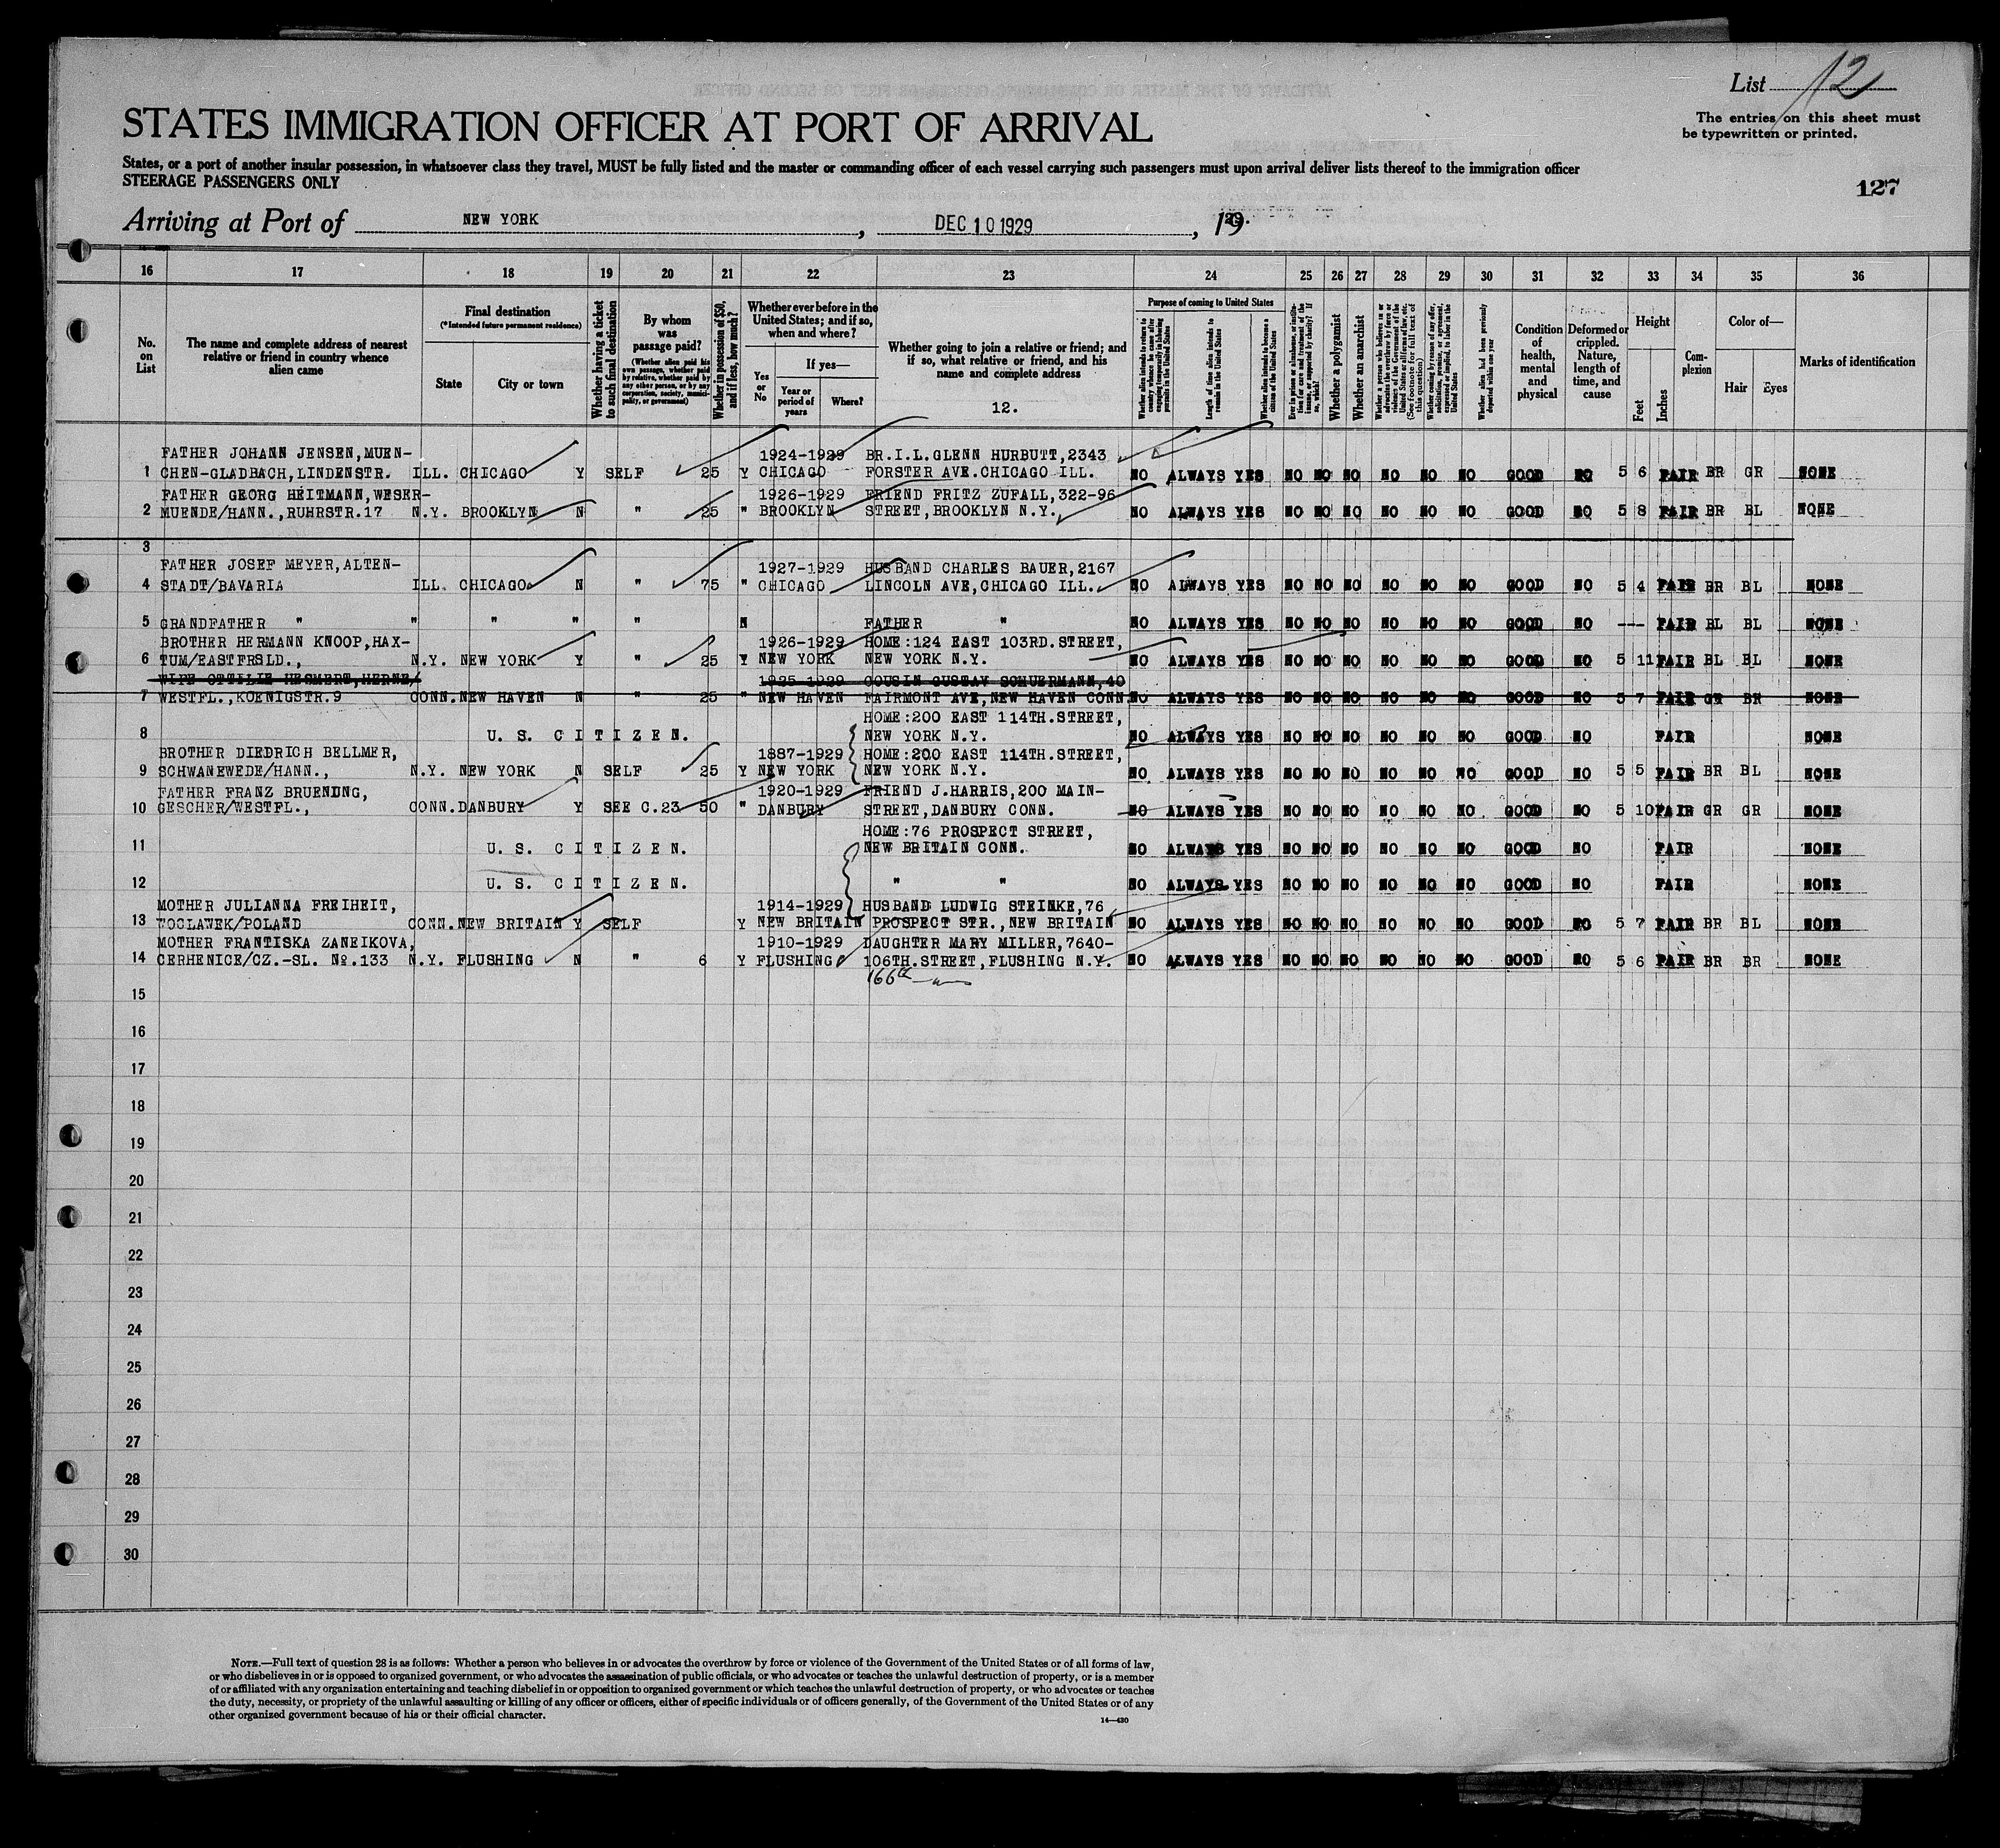 List 12
The entries on this sheet must
be typewritten or printed.
STATES IMMIGRATION OFFICER AT PORT OF ARRIVAL
States, or a port of another insular possession, in whatsoever class they travel, MUST be fully listed and the master or commanding officer of each vessel carrying such passengers must upon arrival deliver lists thereof to the immigration officer
STEERAGE PASSENGERS ONLY
127
Arriving at Port of NEW YORK , DEC 10 1929 , 1929.
16 17 18 19 20 21 22 23 24 25 26 27 28 29 30 31 32 33 34 35 36
No. on List
The name and complete address of nearest relative or friend in country whence alien came
Final destination
(*Intended future permanent residence)
State City or town
Whether having a ticket to such final destination
By whom was passage paid?
(Whether alien paid his own passage, whether paid by relative, whether paid by any other person, or by any corporation, society, municipality, or government)
Whether in possession of $50, and if less, how much?
Whether ever before in the United States; and if so, when and where?
Yes or No
If yes—
Year or period of years
Where?
Whether going to join a relative or friend; and if so, what relative or friend, and his name and complete address
12.
Purpose of coming to United States
Whether alien intends to return to country whence he came after engaging temporarily in laboring pursuits in the United States
Length of time alien intends to remain in the United States
Whether alien intends to become a citizen of the United States
Whether a polygamist
Whether an anarchist
Condition of health, mental and physical
Deformed or crippled. Nature, length of time, and cause
Height
Feet Inches
Complexion
Color of—
Hair Eyes
Marks of identification
FATHER JOHANN JENSEN,MUEN- 1924-1929 BR.I.L.GLENN HURBUTT,2343
1 CHEN-GLADBACH,LINDENSTR. ILL. CHICAGO Y SELF 25 Y CHICAGO FORSTER AVE.CHICAGO ILL. NO ALWAYS YES NO NO NO NO NO NO GOOD NO 5 6 FAIR BR GR NONE
FATHER GEORG HEITMANN,WESER- 1926-1929 FRIEND FRITZ ZUFALL,322-96
2 MUENDE/HANN.,RUHRSTR.17 N.Y. BROOKLYN N " 25 " BROOKLYN STREET,BROOKLYN N.Y. NO ALWAYS YES NO NO NO NO NO NO GOOD NO 5 8 FAIR BR BL NONE
3
FATHER JOSEF MEYER,ALTEN- 1927-1929 HUSBAND CHARLES BAUER,2167
4 STADT/BAVARIA ILL. CHICAGO N " 75 " CHICAGO LINCOLN AVE,CHICAGO ILL. NO ALWAYS YES NO NO NO NO NO NO GOOD NO 5 4 FAIR BR BL NONE
5 GRANDFATHER " " " " " N FATHER " NO ALWAYS YES NO NO NO NO NO NO GOOD NO --- FAIR BL BL NONE
BROTHER HERMANN KNOOP,HAX- 1926-1929 HOME:124 EAST 103RD.STREET,
6 TUM/EASTFRSLD., N.Y. NEW YORK Y " 25 Y NEW YORK NEW YORK N.Y. NO ALWAYS YES NO NO NO NO NO NO GOOD NO 5 11 FAIR BL BL NONE
WIFE OTTILIE HESMERT,HERNE/ 1925-1929 COUSIN GUSTAV SCHUERMANN,40
7 WESTFL.,KOENIGSTR.9 CONN. NEW HAVEN N " 25 " NEW HAVEN FAIRMONT AVE,NEW HAVEN CONN. NO ALWAYS YES NO NO NO NO NO NO GOOD NO 5 7 FAIR GR BR NONE
HOME:200 EAST 114TH.STREET,
8 U. S. C I T I Z E N. NEW YORK N.Y. NO ALWAYS YES NO NO NO NO NO NO GOOD NO FAIR NONE
BROTHER DIEDRICH BELLMER, 1887-1929 HOME:200 EAST 114TH.STREET,
9 SCHWANEWEDE/HANN., N.Y. NEW YORK N SELF 25 Y NEW YORK NEW YORK N.Y. NO ALWAYS YES NO NO NO NO NO NO GOOD NO 5 5 FAIR BR BL NONE
FATHER FRANZ BRUENUNG, 1920-1929 FRIEND J.HARRIS,200 MAIN-
10 GESCHER/WESTFL., CONN. DANBURY Y SEE C.23 50 " DANBURY STREET,DANBURY CONN. NO ALWAYS YES NO NO NO NO NO NO GOOD NO 5 10 FAIR GR GR NONE
HOME:76 PROSPECT STREET,
11 U. S. C I T I Z E N. NEW BRITAIN CONN. NO ALWAYS YES NO NO NO NO NO NO GOOD NO FAIR NONE
12 U. S. C I T I Z E N. " " NO ALWAYS YES NO NO NO NO NO NO GOOD NO FAIR NONE
MOTHER JULIANNA FREIHEIT, 1914-1929 HUSBAND LUDWIG STEINKE,76
13 WOCLAWEK/POLAND CONN. NEW BRITAIN Y SELF Y NEW BRITAIN PROSPECT STR.,NEW BRITAIN NO ALWAYS YES NO NO NO NO NO NO GOOD NO 5 7 FAIR BR BL NONE
MOTHER FRANTISKA ZANEIKOVA, 1910-1929 DAUGHTER MARY MILLER,7640-
14 CERHENICE/CZ.-SL. No.133 N.Y. FLUSHING N " 6 Y FLUSHING 106TH.STREET,FLUSHING N.Y. NO ALWAYS YES NO NO NO NO NO NO GOOD NO 5 6 FAIR BR BR NONE
166th
15
16
17
18
19
20
21
22
23
24
25
26
27
28
29
30
NOTE.—Full text of question 28 is as follows: Whether a person who believes in or advocates the overthrow by force or violence of the Government of the United States or of all forms of law,
or who disbelieves in or is opposed to organized government, or who advocates the assassination of public officials, or who advocates or teaches the unlawful destruction of property, or is a member
of or affiliated with any organization entertaining and teaching disbelief in or opposition to organized government or which teaches the unlawful destruction of property, or who advocates or teaches
the duty, necessity, or propriety of the unlawful assaulting or killing of any officer or officers, either of specific individuals or of officers generally, of the Government of the United States or of any
other organized government because of his or their official character.
14—430